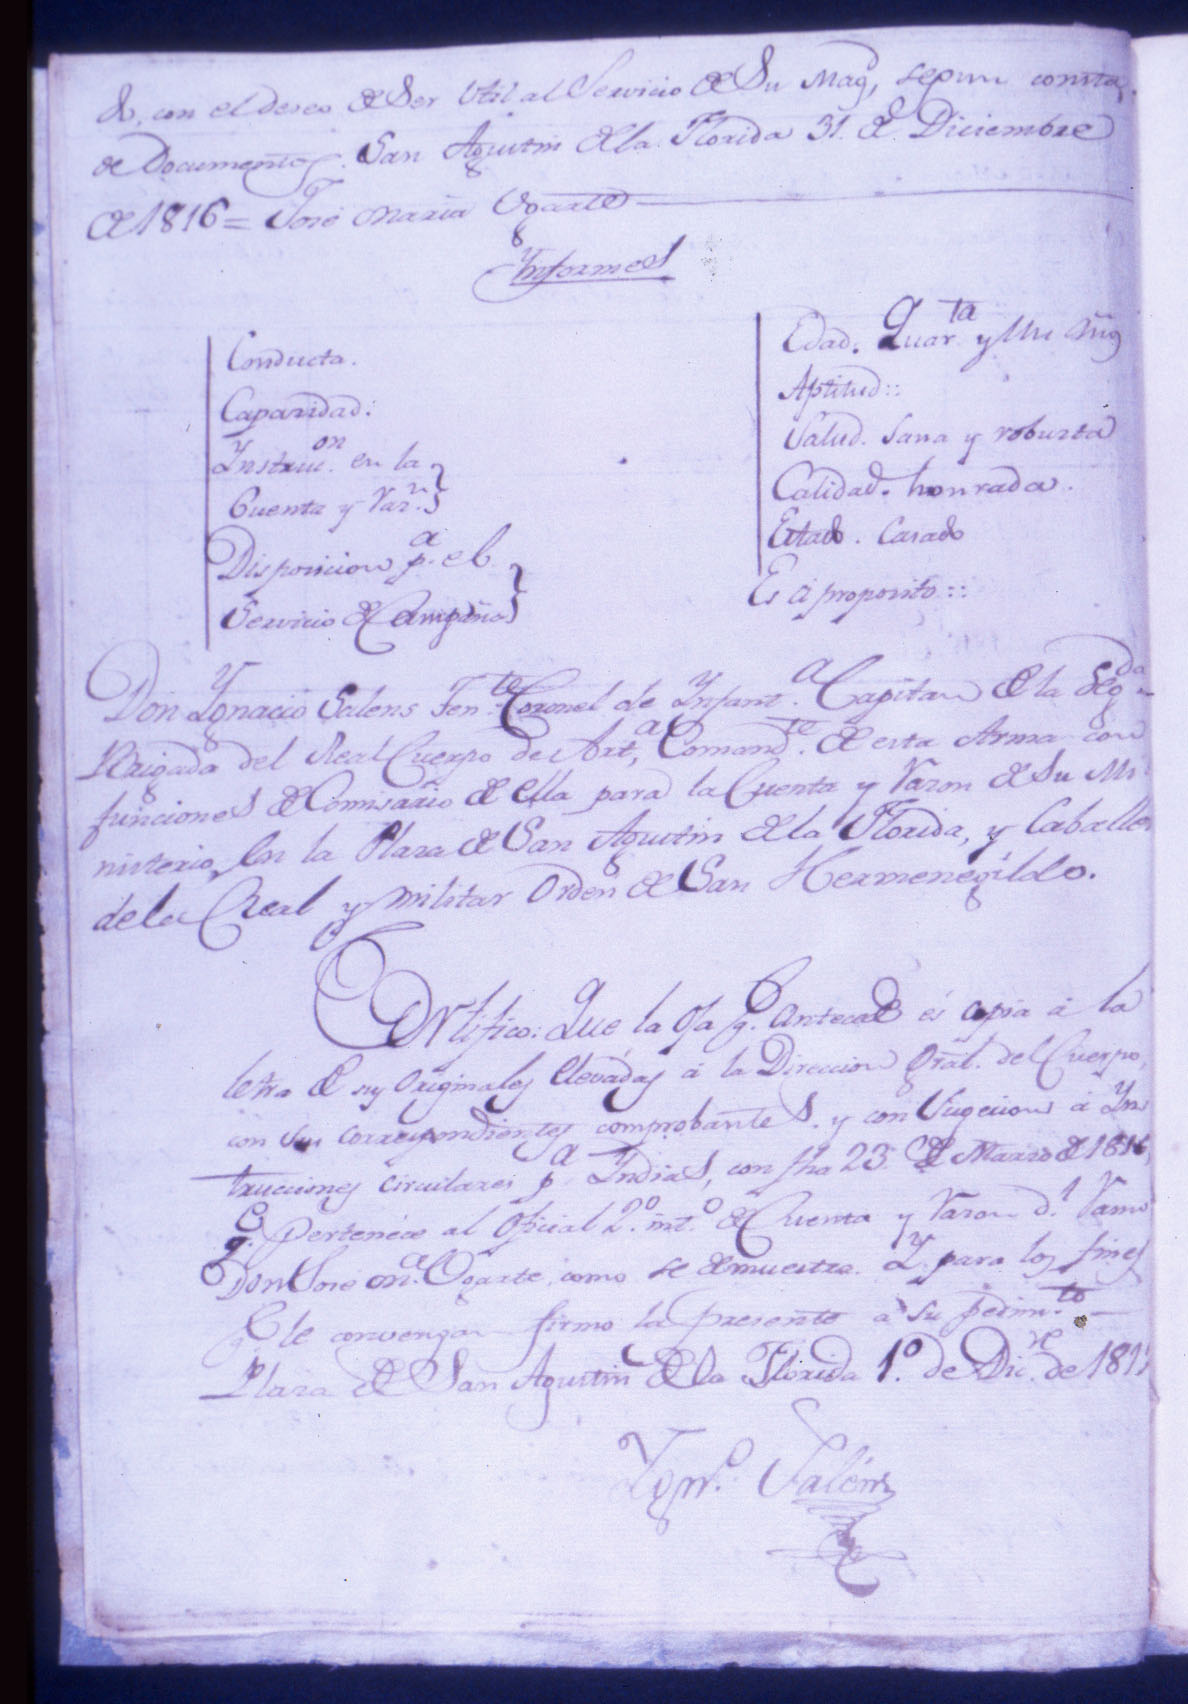 do, con el deseo de Ser Util al Servicio de Su Mag, segun consta
de Documentos. San Agustin de la Florida 31. de Diciembre
de 1816 = José Maria Ugarte
Ynformes
Conducta.
Capasidad:
Ynstruc.on en la
Cuenta y Raz.n
Disposicion p.a el
Servicio de Campaña
Edad. Quar.ta y Un Años
Aptitud::
Salud. Sana y robusta
Calidad. honrada.
Estado. Casado
Es á proposito::
Don Ygnacio Salens Ten.te Coronel de Ynfant.a Capitan de la Seg.da
Brigada del Real Cuerpo de Art.a, Comand.te de esta Arma con
funciones de Comisario de ella para la Cuenta y Razon de Su Mi
nisterio, en la Plaza de San Agustin de la Florida, y Caballero
de la Real y militar Orden de San Hermenegildo.
Certifico: Que la Oja q. antecede és copia á la
letra de sus Originales elevadas á la Direccion Gral. del Cuerpo,
con sus correspondientes comprobantes. y con Sugecion á Yns
trucciones circulares p.a Yndias, con fha 23 de Marzo de 1816,
q.e pertenece al Oficial 2.o int.o de Cuenta y Razon d.l Ramo
Don Jose M.a Ogarte, como se demuestra. Y para los fines
q.e le convengan firmo la presente á su pedim.to
Plaza de San Agustin de la Florida 1.o de Dic.re de 181
Ygn.o Saléns